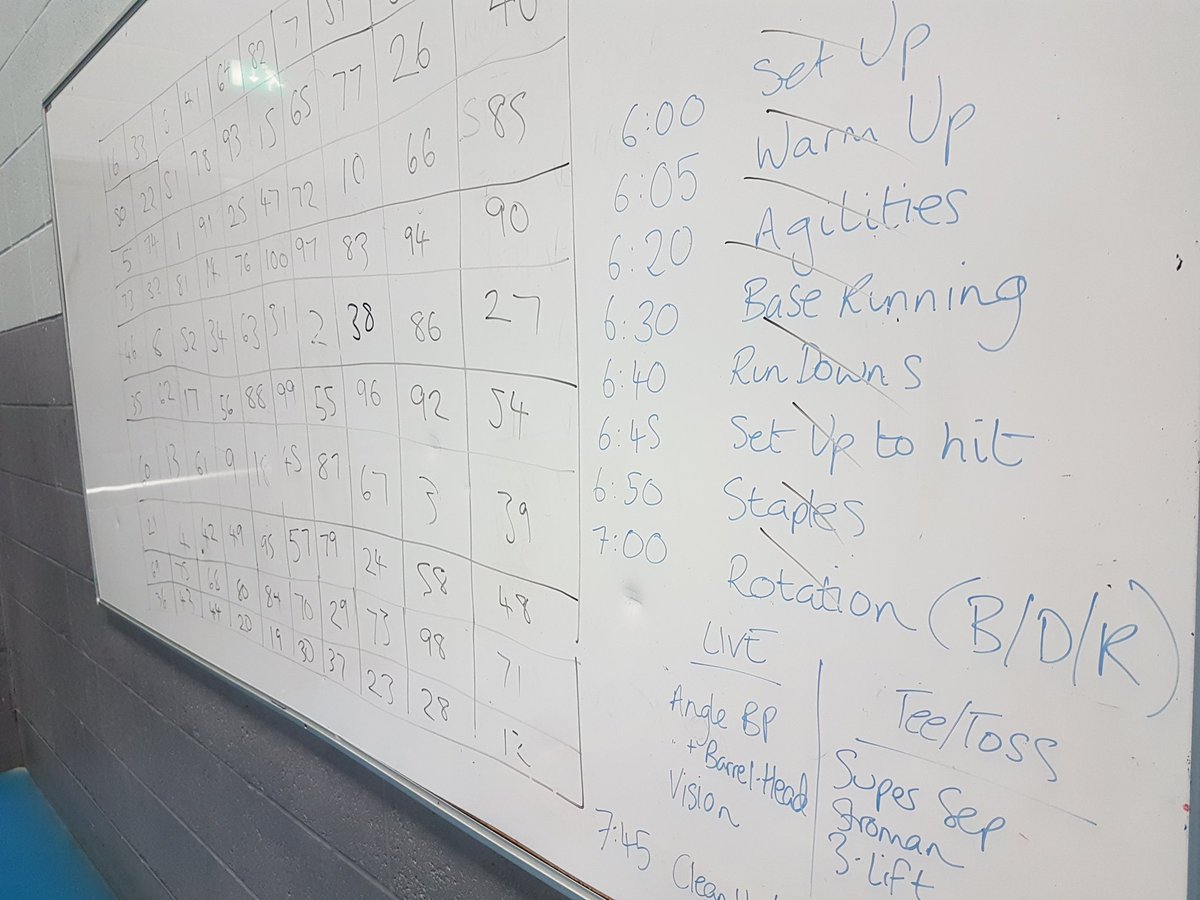 40
82 7 77 26 S85
16 33 41
50 22 51 78 93 15 65 10 66 90
5 74 1 91 25 47 72 83 94
73 32 81 14 76 100 97 38 86 27
46 6 52 34 63 31 2
35 62 17 56 88 99 55 96 92 54
13 61 9 87 67 3 39
4 42 49 95 57 79 24 58 48
68 80 84 70 29 73 98 71
44 20 19 30 37 23 28 12
Set Up
6:00 Warm Up
6:05 Agilities
6:20 Base Running
6:30 Run Downs
6:40 Set Up to hit
6:45 Staples
6:50 Rotation (B/D/R)
7:00
LIVE
Angle BP
+ Barrel-Head
Vision
Tee/Toss
Supes Sep
Stroman
3-Lift
7:45 Clean